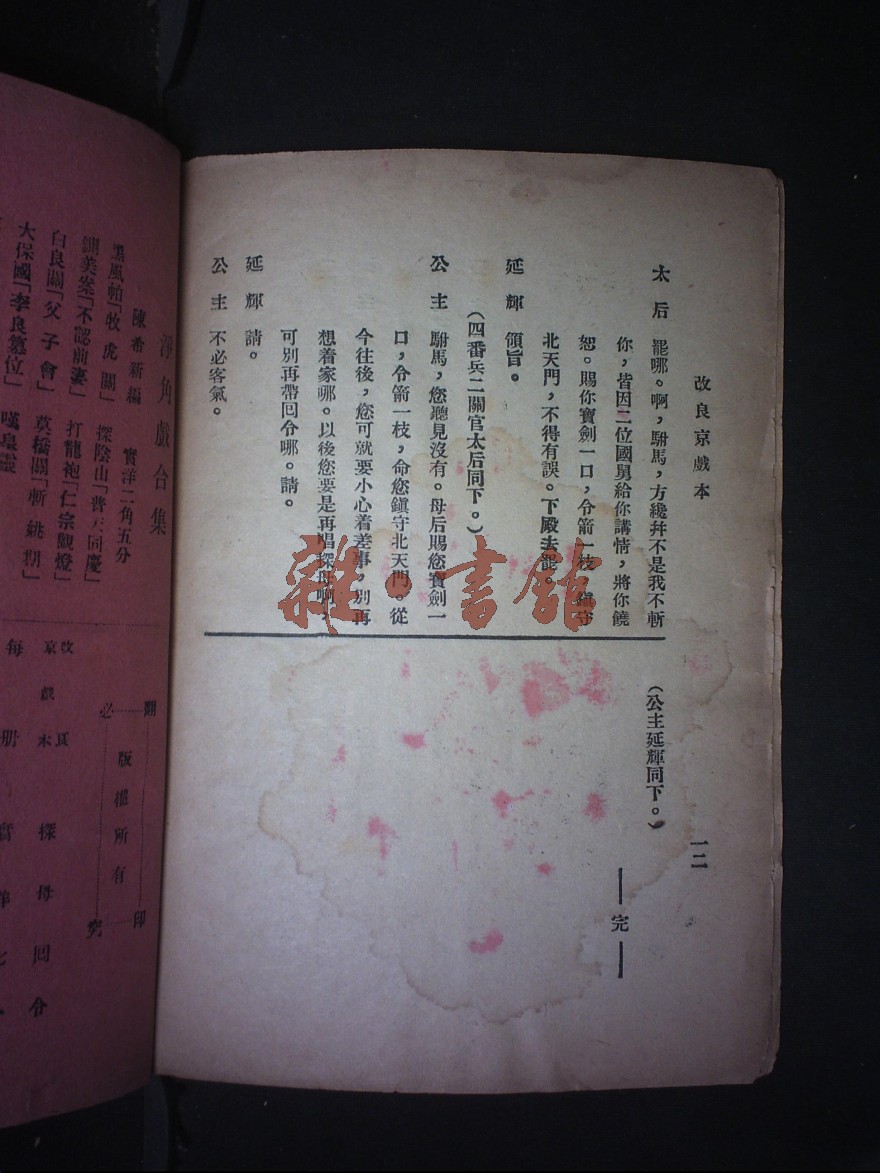 改良京戲本
太后 罷哪。啊,駙馬,方纔幷不是我不斬
你,皆因二位國舅給你講情,將你饒
恕。賜你寶劍一口,令箭一枝,鎮守
北天門,不得有誤。下殿去罷。
延輝 領旨。
(四番兵二關官太后同下。)
公主 駙馬,您聽見沒有。母后賜您寶劍一
口,令箭一枝,命您鎮守北天門。從
今往後,您可就要小心着差事,別再
想着家哪。以後您要是再唱探母啊,
可別再帶回令哪。請。
延輝 請。
公主 不必客氣。
(公主延輝同下。)
——完——
一二
淨角戲合集
陳希新編 實洋二角五分
黑風帕「牧虎關」 探陰山「普天同慶」
鍘美案「不認前妻」 打龍袍「仁宗觀燈」
白良關「父子會」 草橋關「斬姚期」
大保國「李良篡位」 嘆皇靈
翻印必究
版權所有
改良京戲本 探母回令
每册實洋
雜·書館